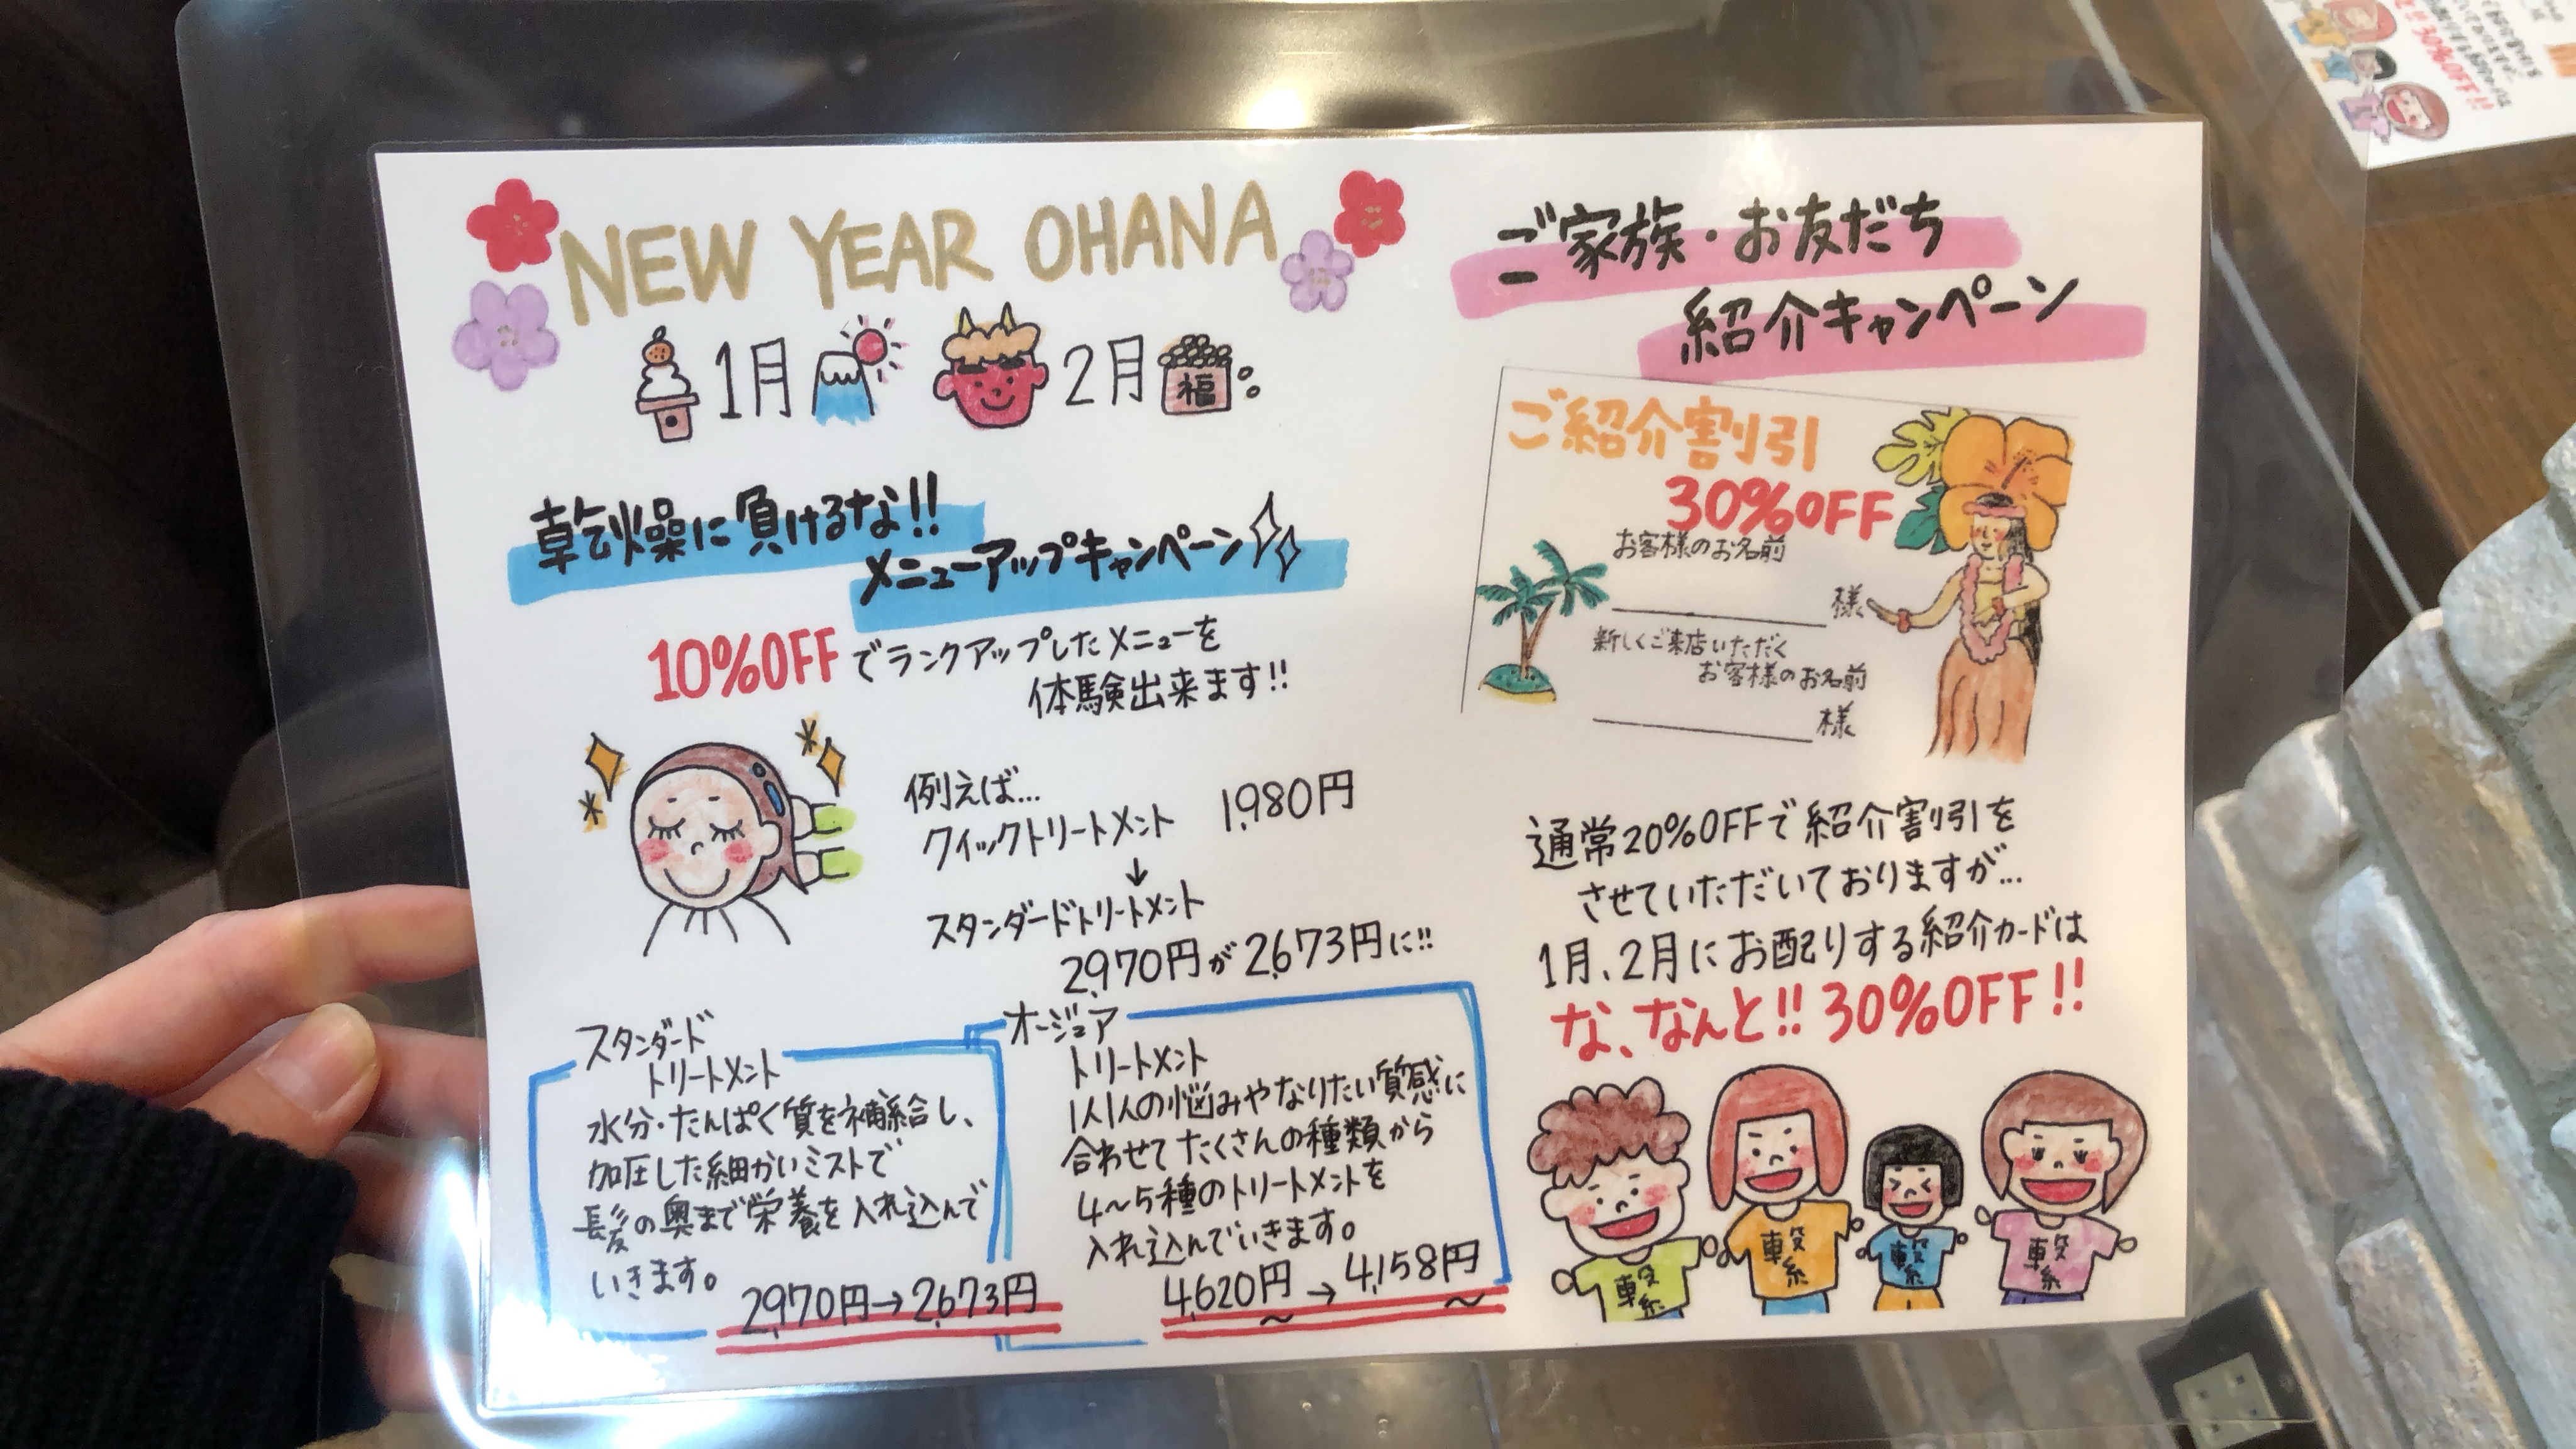 NEW YEAR OHANA
1月 2月 福
乾燥に負けるな!!
メニューアップキャンペーン
10%OFFでランクアップしたメニューを
体験出来ます!!
例えば…
クイックトリートメント 1,980円
↓
スタンダードトリートメント
2,970円が2,673円に!!
スタンダード
トリートメント
水分・たんぱく質を補給し、
加圧した細かいミストで
髪の奥まで栄養を入れ込んで
いきます。
2,970円→2,673円
オージュア
トリートメント
1人1人の悩みやなりたい質感に
合わせてたくさんの種類から
4〜5種のトリートメントを
入れ込んでいきます。
4,620円〜→4,158円〜
ご家族・お友だち
紹介キャンペーン
ご紹介割引
30%OFF
お客様のお名前
様
新しくご来店いただく
お客様のお名前
様
通常20%OFFで紹介割引を
させていただいておりますが…
1月、2月にお配りする紹介カードは
な、なんと!!30%OFF!!
30%OFF!!